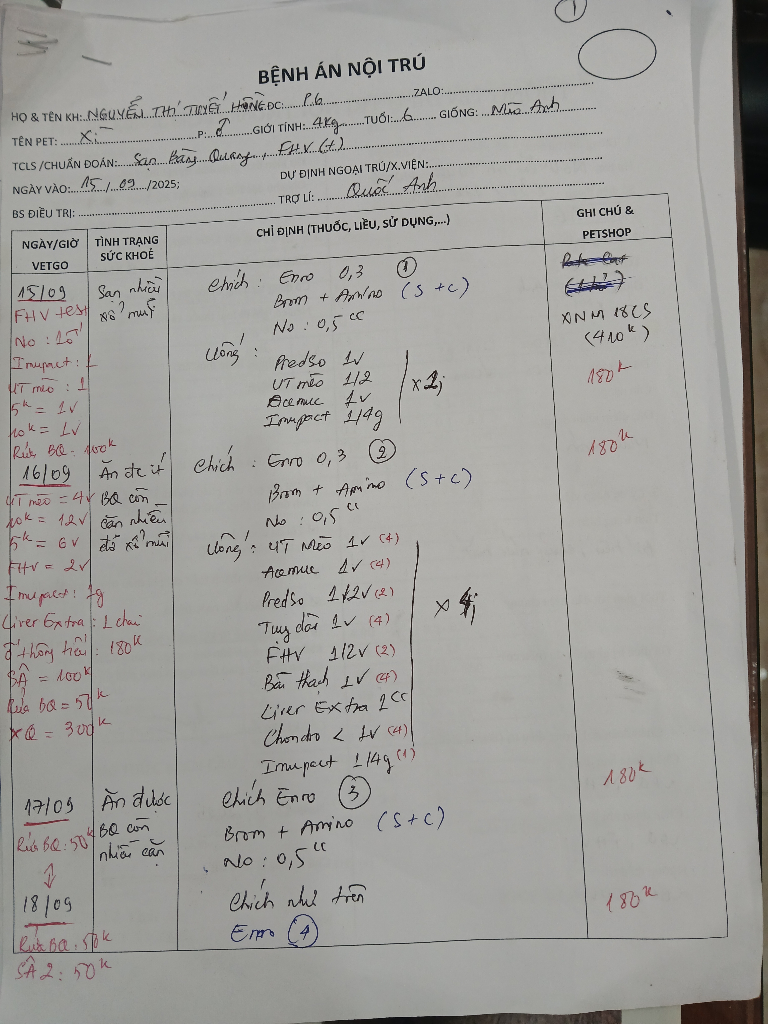 1
BỆNH ÁN NỘI TRÚ
HỌ & TÊN KH: NGUYỄN THỊ TUYẾT HỒNG ĐC: P.6 ZALO:
TÊN PET: Xỉ P: ♂ GIỚI TÍNH: 4kg TUỔI: 6 GIỐNG: Mèo Anh
TCLS /CHUẨN ĐOÁN: Sạn Bàng Quang, FHV (+)
NGÀY VÀO: 15/ 09 /2025; DỰ ĐỊNH NGOẠI TRÚ/X.VIỆN:
BS ĐIỀU TRỊ: TRỢ LÍ: Quốc Anh
NGÀY/GIỜ VETGO
TÌNH TRẠNG SỨC KHOẺ
CHỈ ĐỊNH (THUỐC, LIỀU, SỬ DỤNG,...)
GHI CHÚ & PETSHOP
15/09
FHV test
No : 10
Imupact : 1
UT mèo : 1
5k = 1v
10k = 1v
Rửa BQ = 100k
Sạn nhiều
xổ mũi
Chích : Enro 0,3 1
Brom + Amino (S + C)
No : 0,5cc
Uống : Predso 1v
UT mèo 1/2
Acemuc 1v
Imupact 1/4g
x 2j
XNM 18CS
(410k)
180k
16/09
UT mèo = 4v
10k = 12v
5k = 6v
FHV = 2v
Imupact : 1g
Liver Extra : 1 chai
ố thông tiểu : 180k
SÂ = 100k
Rửa BQ = 50k
XQ = 300k
Ăn đc ít
BQ còn
cặn nhiều
đỡ xổ mũi
Chích : Enro 0,3 2
Brom + Amino (S + C)
No : 0,5cc
Uống : UT Mèo 1v (4)
Acemuc 1v (4)
Predso 1/2v (2)
Tuy dài 1v (4)
FHV 1/2v (2)
Bài thạch 1v (4)
Liver Extra 1cc
Chondro < 1v (4)
Imupact 1/4g (1)
x 4j
180k
17/09
Rửa BQ : 50k
Ăn được
BQ còn
nhiều cặn
Chích Enro 3
Brom + Amino (S + C)
No : 0,5cc
180k
18/09
Rửa BQ : 50k
SÂ 2 : 50k
Chích như trên
Enro 4
180k